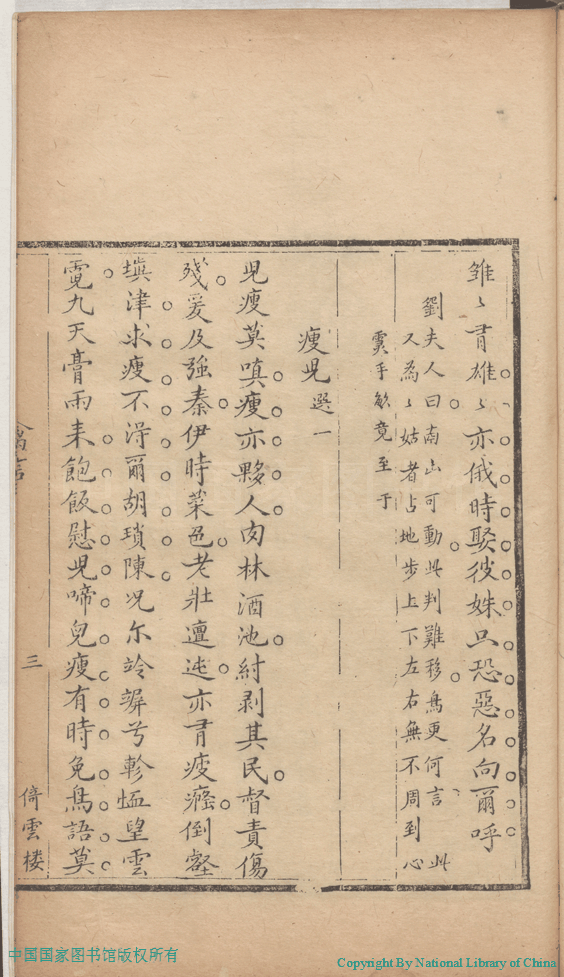 雏〻胥雄〻亦俄時娶彼姝只恐惡名向爾呼
劉夫人曰南山可動此判難移鳥更何言 此
又為〻姑者占地步上下左右無不周到 心
霙手敏竟至于
瘦児選一
児瘦莫嗔瘦亦夥人肉林酒池紂剥其民督責傷
残爰及強秦伊時菜色老壯邅迍亦胥疲癃倒壑
塡津求瘦不淂爾胡瑣陳况尓竛竮兮軫恤望雲
霓九天膏雨来飽飯慰児啼兒瘦有時免鳥語莫
禽言
三
倚雲楼
中国国家图书馆版权所有
Copyright By National Library of China